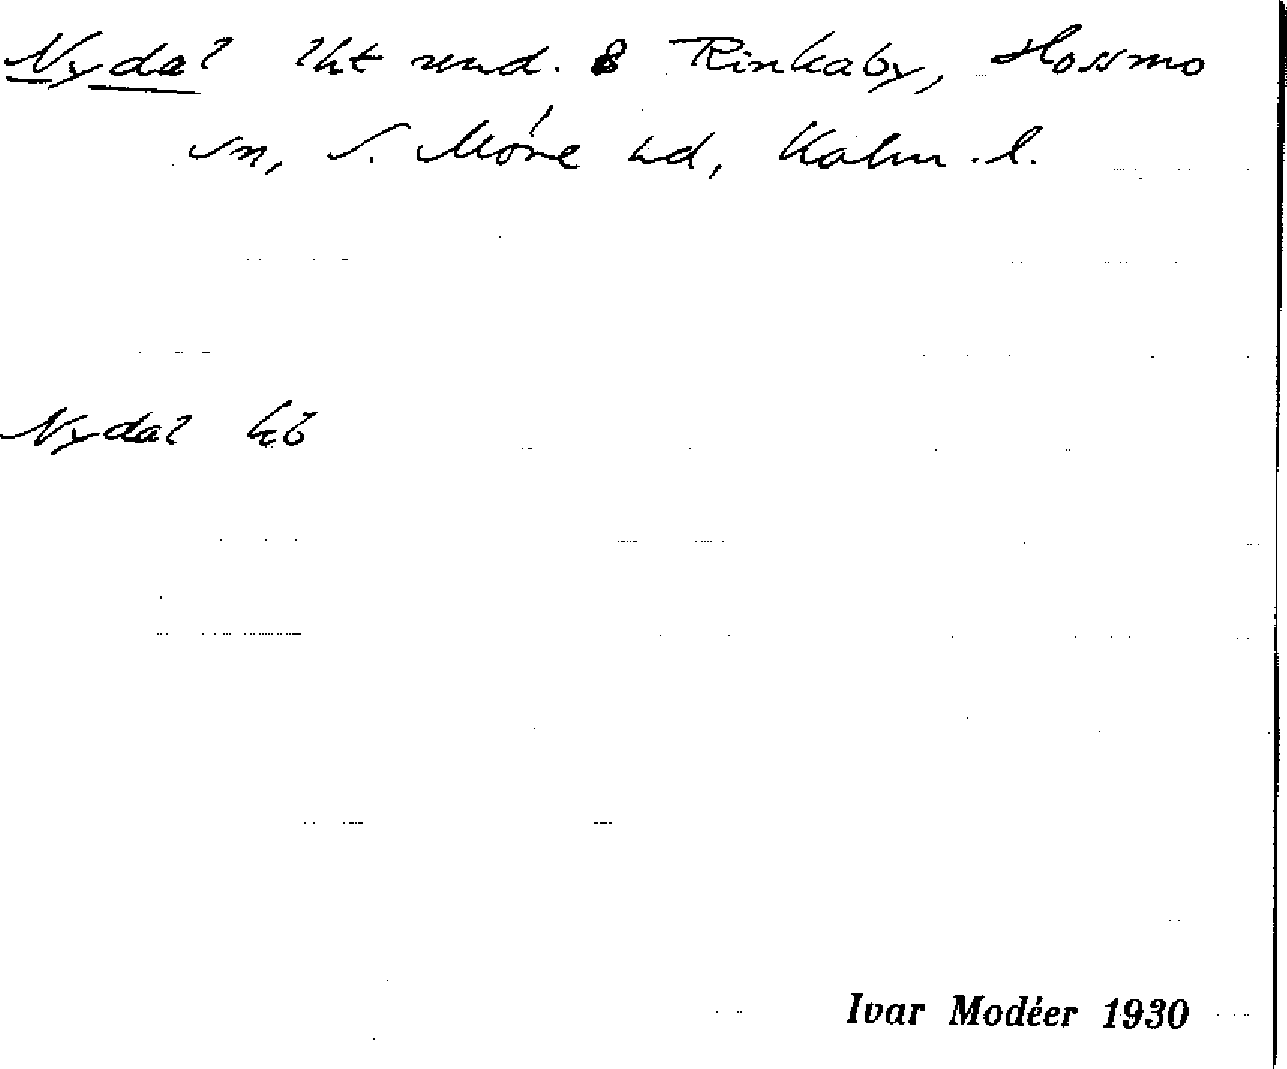 Nydal lht und. 8 Rinkaby, Hossmo
sn, S. Möre hd, Kalm. l.
Nydal kb
Ivar Modéer 1930